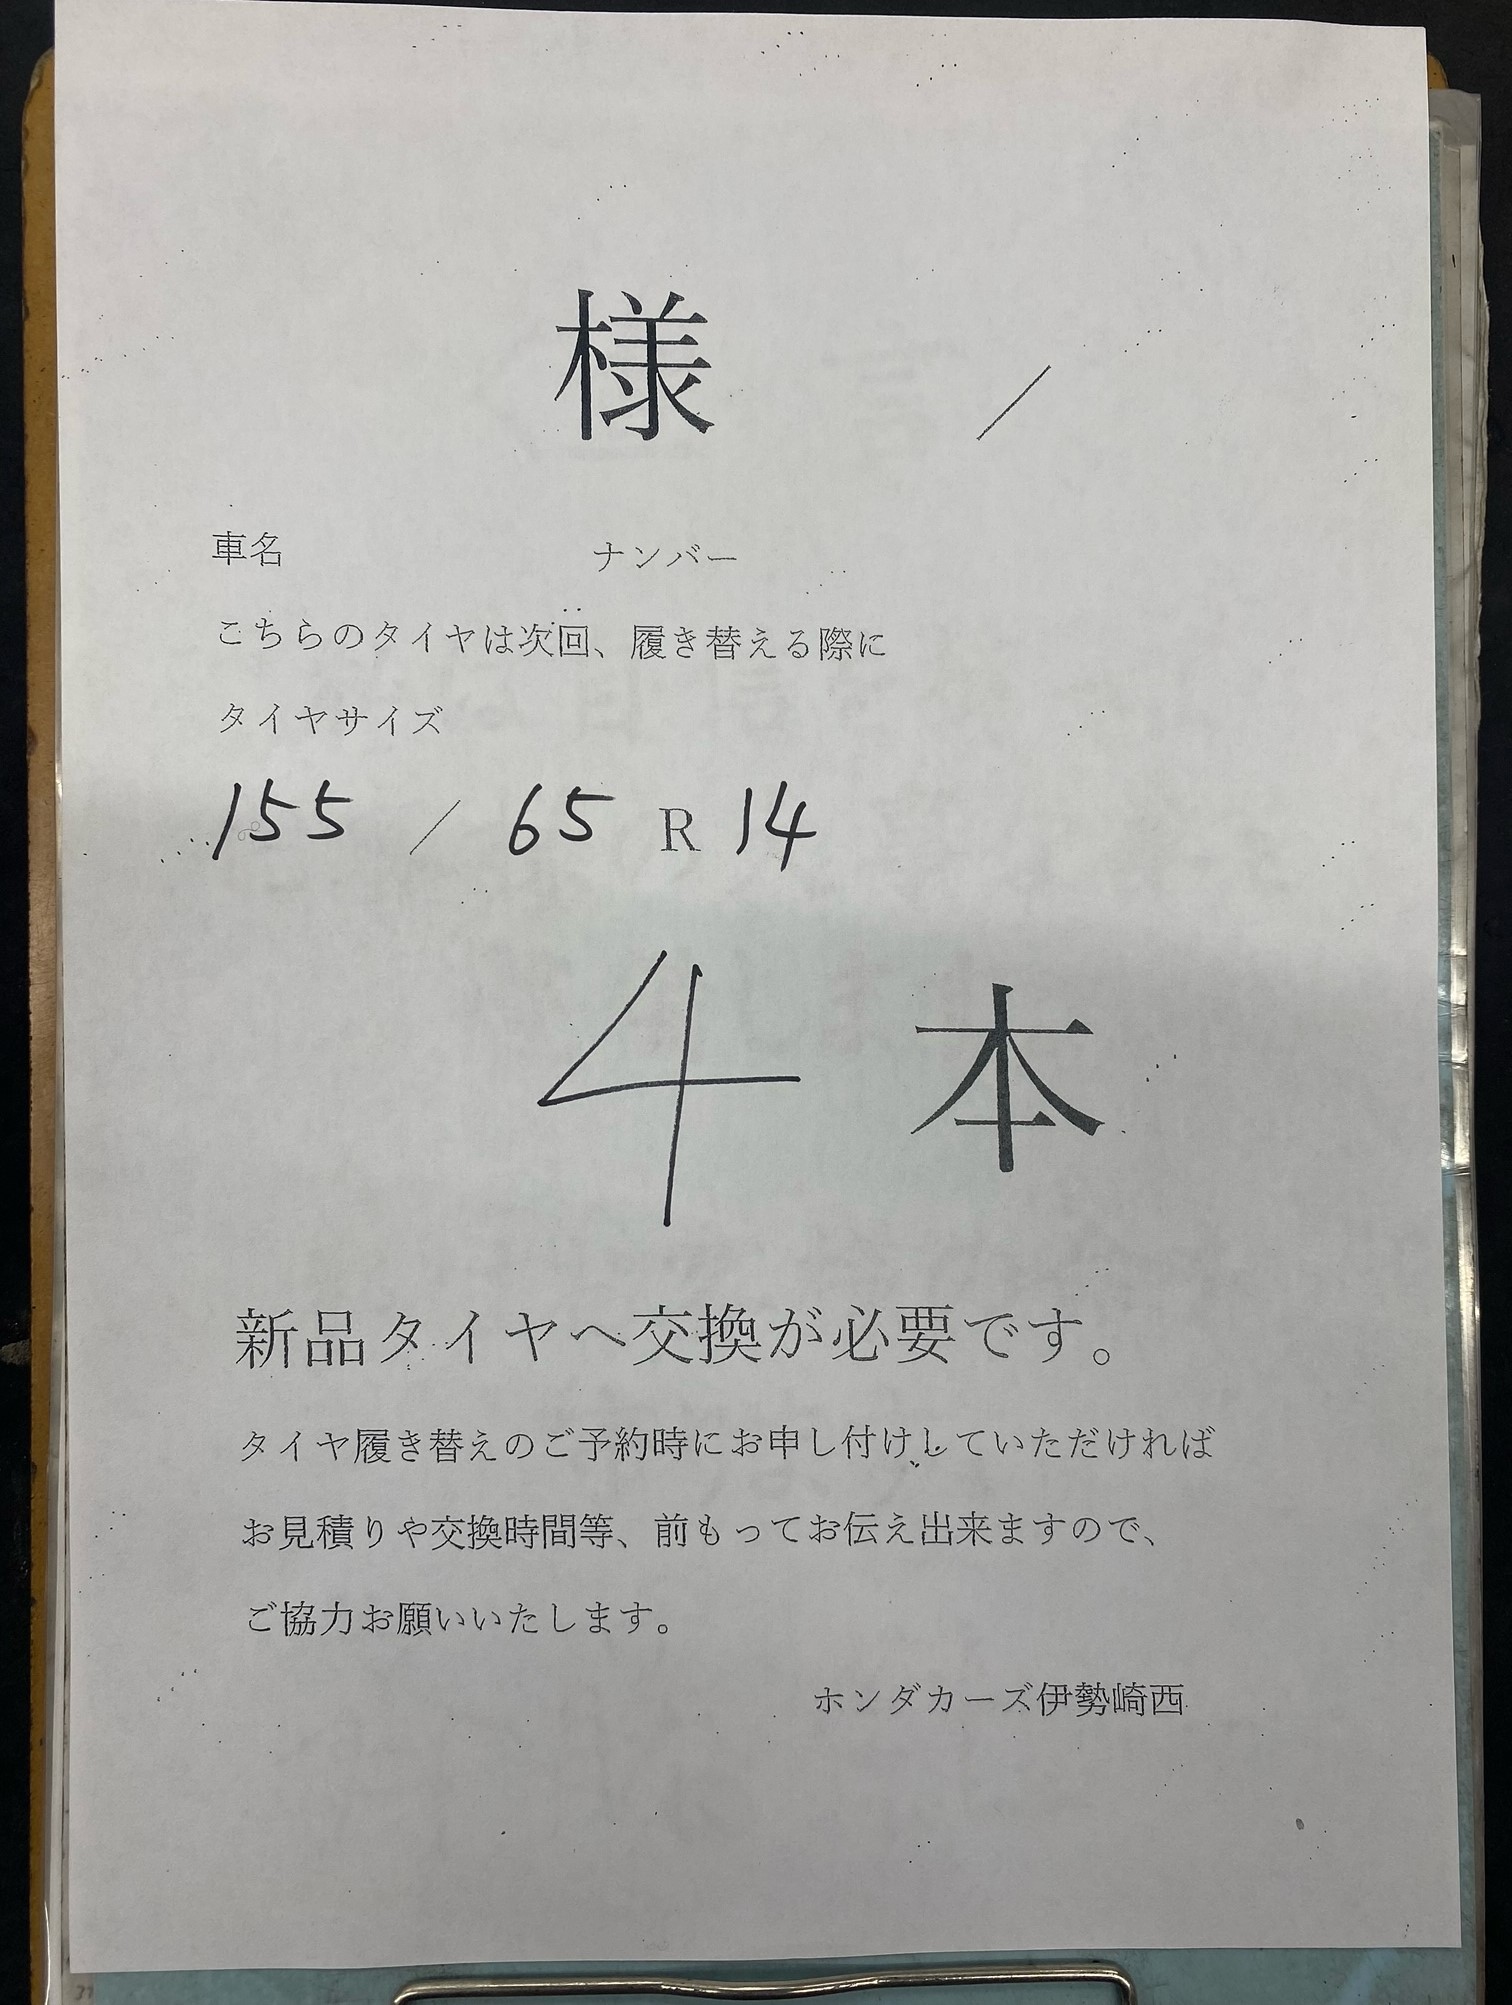 様 ／
車名 ナンバー
こちらのタイヤは次回、履き替える際に
タイヤサイズ
155 ／ 65 R 14
4 本
新品タイヤへ交換が必要です。
タイヤ履き替えのご予約時にお申し付けしていただければ
お見積りや交換時間等、前もってお伝え出来ますので、
ご協力お願いいたします。
ホンダカーズ伊勢崎西